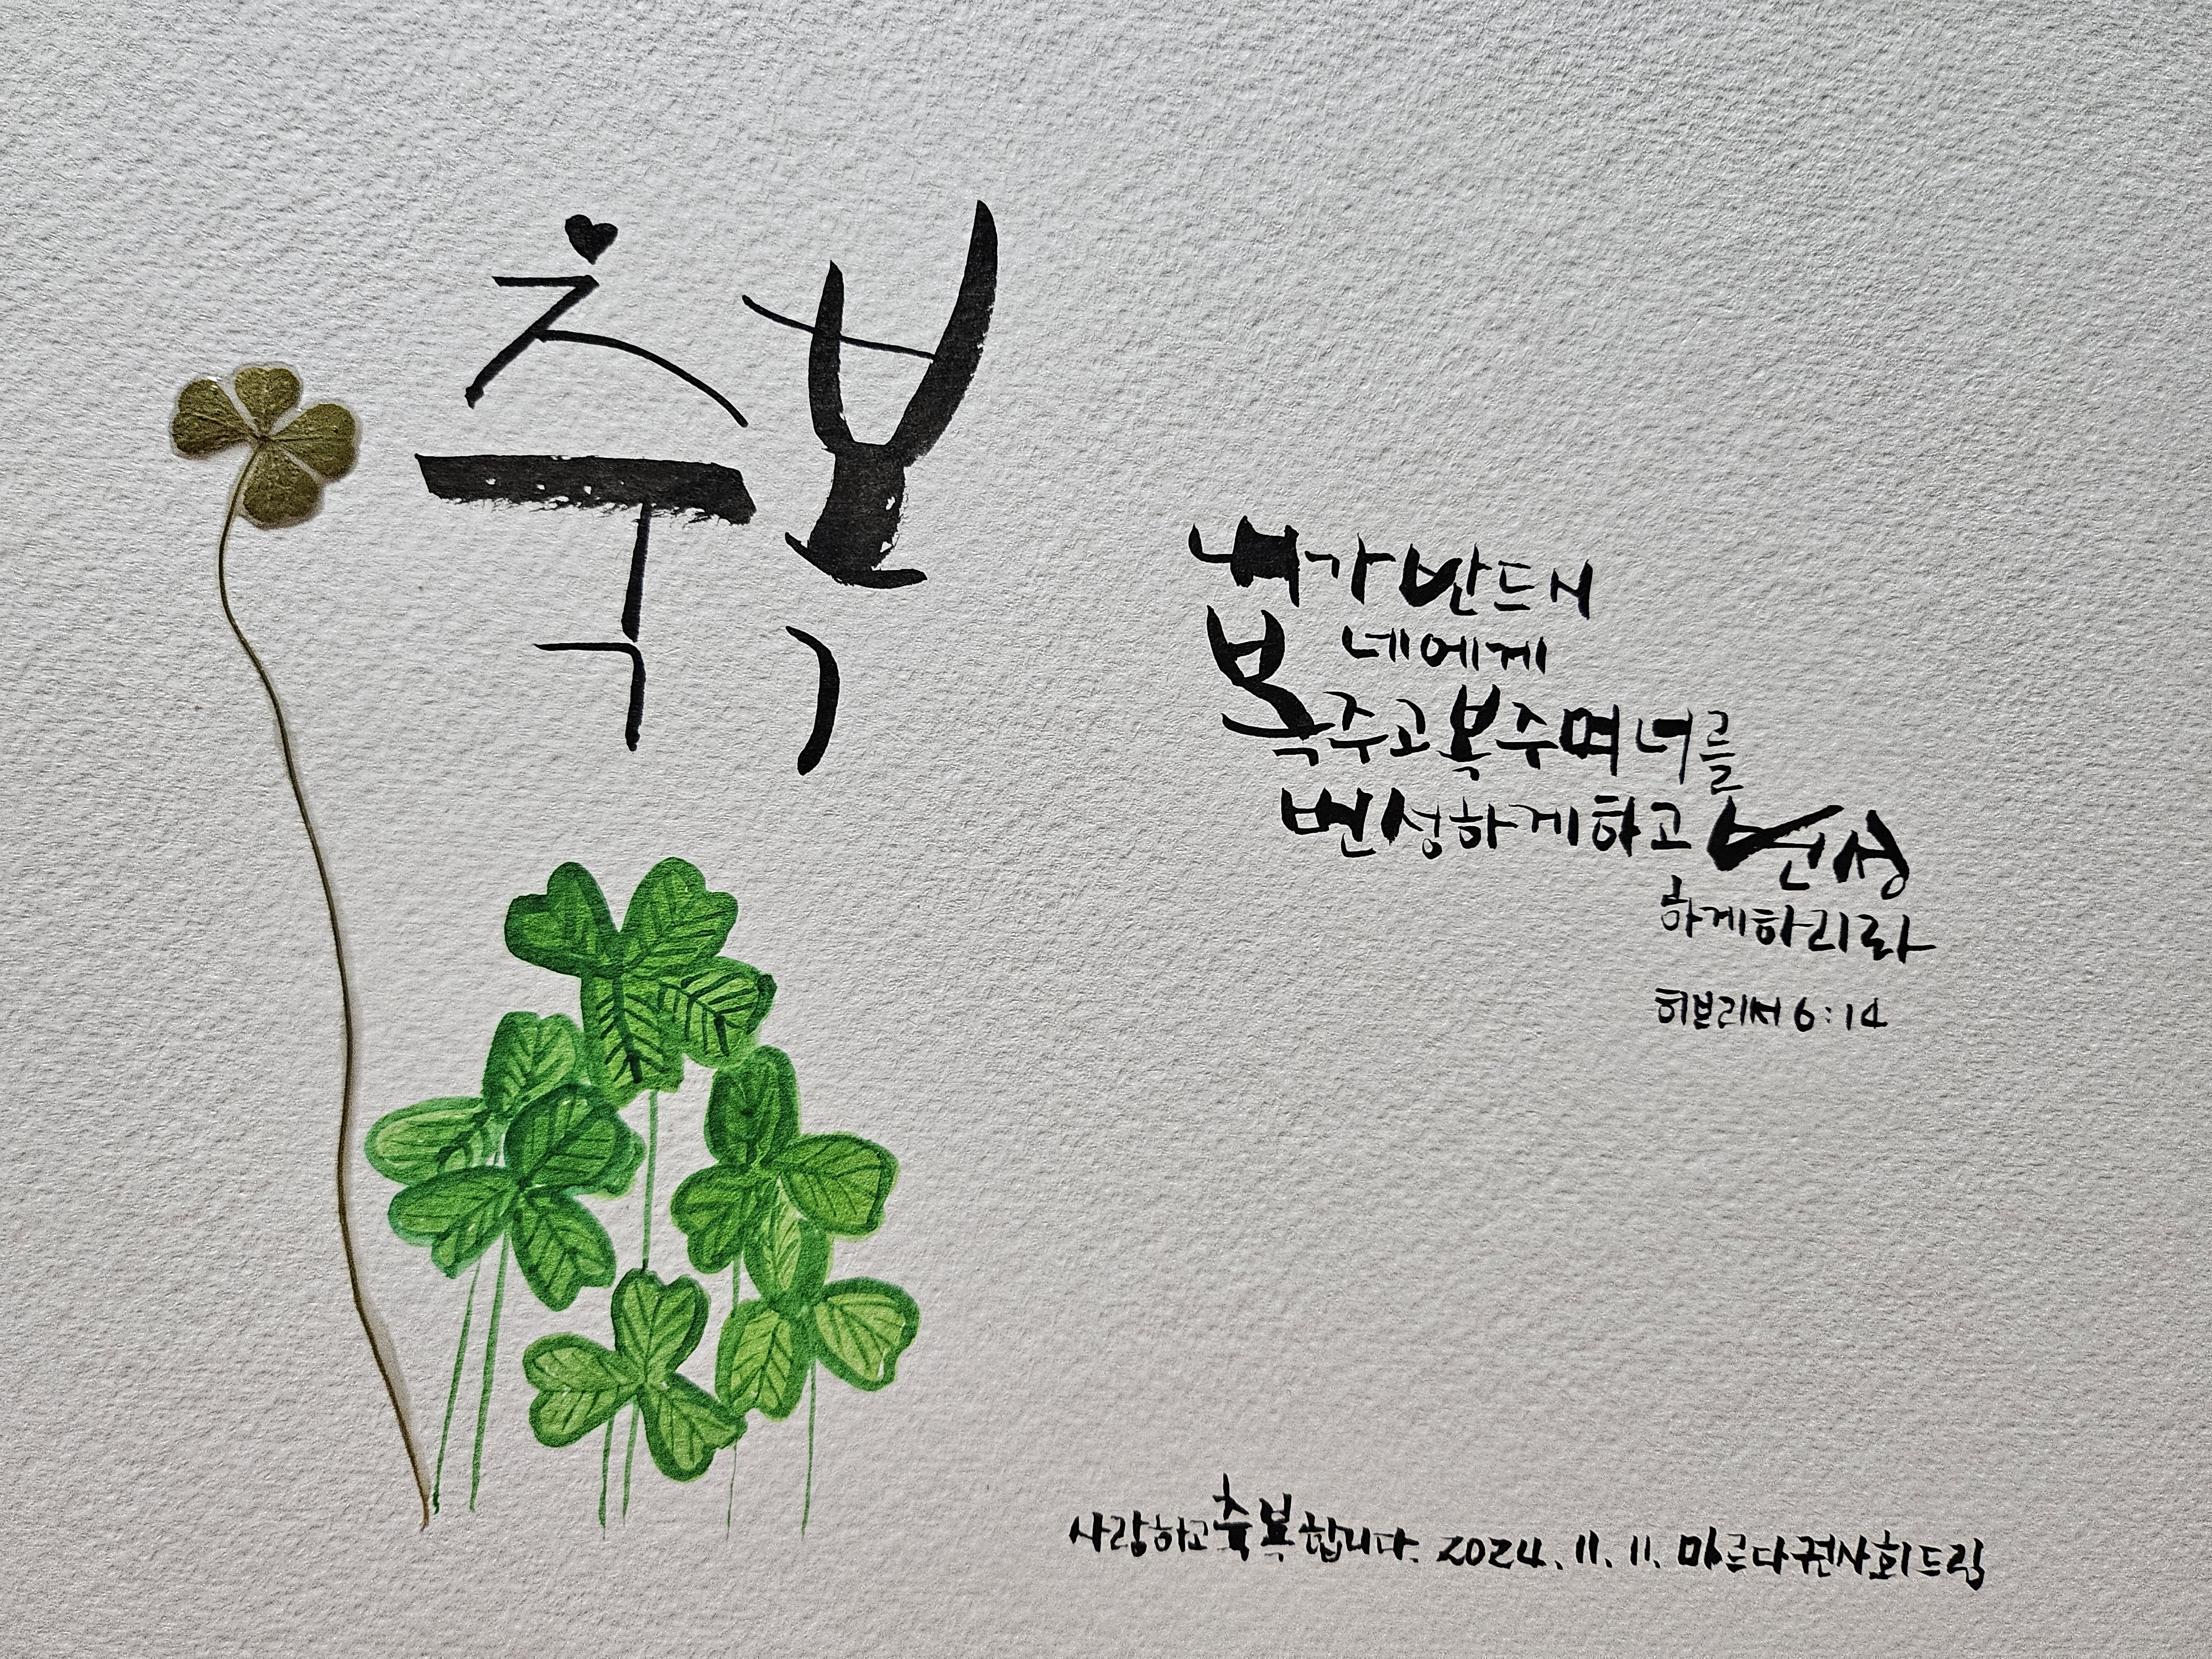 축복
내가 반드시
네에게
복주고 복주며 너를
번성하게 하고 번성
하게 하리라
히브리서 6:14
사랑하고 축복합니다. 2024. 11. 11. 마르다권사회 드림